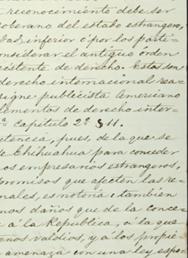 reconocimiento debe ser
soberano del estado estrangero,
inferior ó por los parti-
considerar el antiguo órden
existente de derecho. Esta es
derecho internacional rea-
publicista Americano
elementos de derecho inter-
capitulo 2º § 11.
tencia, pues, de la que se
de Chihuahua para conceder
os empresarios estrangeros,
promisos que afecten las
nales, es notoria tambien
nos daños que de la conce-
á la República, á la que
enos valdios, y á los propie-
amenaza con una ley